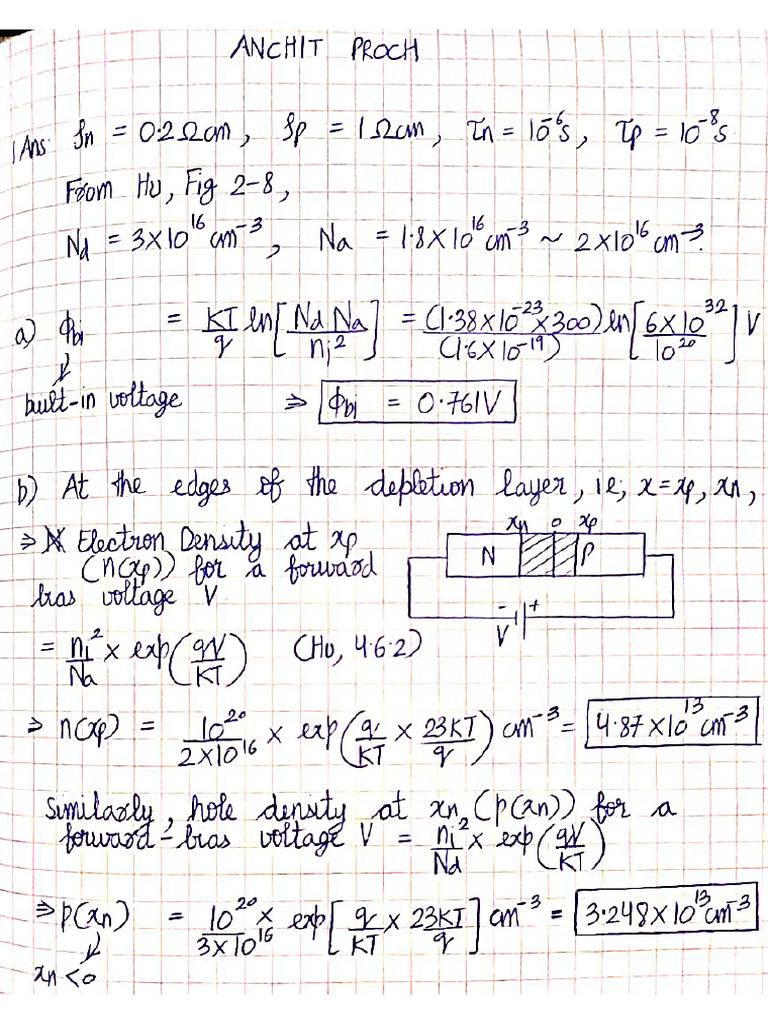 ANCHIT PROCH
1Ans ρn = 0.2Ωcm, ρp = 1Ωcm, τn = 10⁻⁶s, τp = 10⁻⁸s
From Hu, Fig 2-8,
Nd = 3×10¹⁶cm⁻³, Na = 1.8×10¹⁶cm⁻³ ~ 2×10¹⁶cm⁻³.
a) ϕbi = KT/q ln[Nd Na/ni²] = (1.38×10⁻²³×300)/(1.6×10⁻¹⁹) ln[6×10³²/10²⁰] V
↓
built-in voltage ⇒ ϕbi = 0.761V
b) At the edges of the depletion layer, ie; x=xp, xn,
⇒ Electron Density at xp
(n(xp)) for a forward
bias voltage V
xn 0 xp
N P
- +
V
= ni²/Na × exp(qV/KT) (Hu, 4.6.2)
⇒ n(xp) = 10²⁰/2×10¹⁶ × exp(q/KT × 23KT/q) cm⁻³ = 4.87×10¹³cm⁻³
Similarly, hole density at xn, (p(xn)) for a
forward-bias voltage V = ni²/Nd × exp(qV/KT)
⇒ p(xn) = 10²⁰/3×10¹⁶ × exp[q/KT × 23KT/q] cm⁻³ = 3.248×10¹³cm⁻³
↓
xn<0